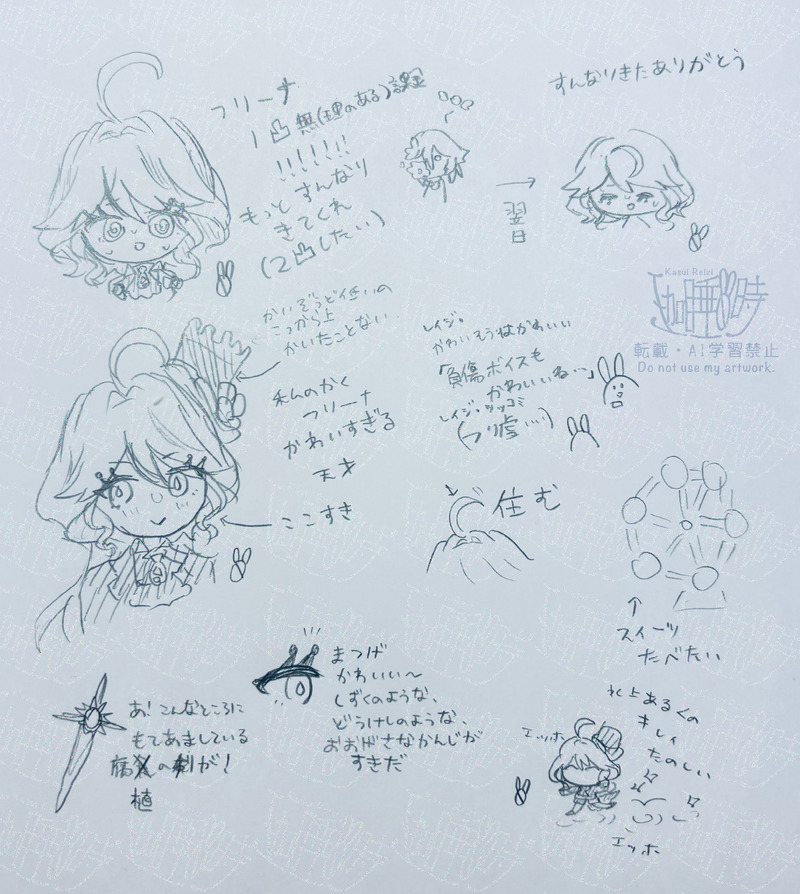 フリーナ
1凸無(理のある)課金
!!!!!!!
もっとすんなり
きてくれ
(2凸したい)
翌日
すんなりきたありがとう
Kasui Reizi
転載・AI学習禁止
Do not use my artwork.
かいぞうど低いの
こっから上
かいたことない.
私のかく
フリーナ
かわいすぎる
天才
ここすき
レイジ。
かわいそうはかわいい
「負傷ボイスも
かわいいね…」
レイジ。ツッコミ
(つり虚…)
住む
スイーツ
たべたい
あ!こんなところに
もてあましている
腐の剣が!
植
まつげ
かわいい〜
しずくのような、
どうけしのような、
おおげさなかんじが
すきだ
水上あるくの
きしぃ
たのしい
エッホ
エッホ